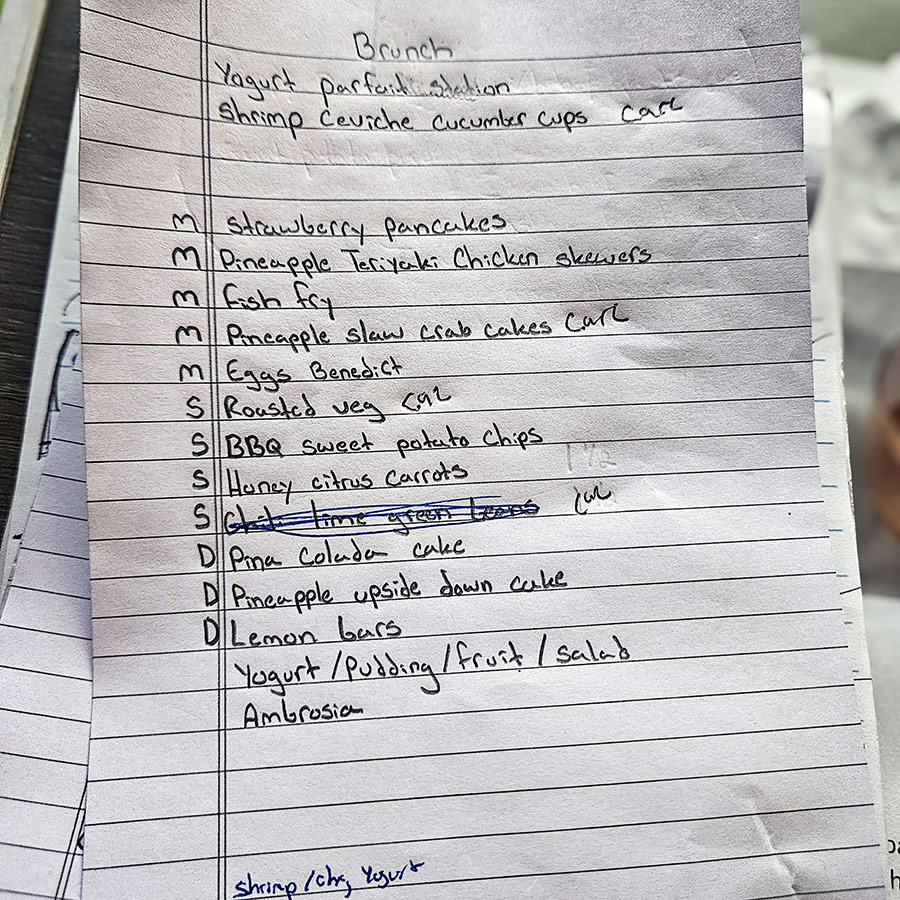 Brunch
Yogurt parfait station
Shrimp Ceviche cucumber cups Carl
M Strawberry pancakes
M Pineapple Teriyaki Chicken skewers
M Fish fry
M Pineapple slaw crab cakes Carl
M Eggs Benedict
S Roasted veg
S BBQ sweet potato chips
1 1/2
S Honey citrus carrots
S Chili lime green beans
D Pina Colada cake
D Pineapple upside down cake
D Lemon bars
Yogurt / Pudding / fruit / salad
Ambrosia
shrimp / Yogurt